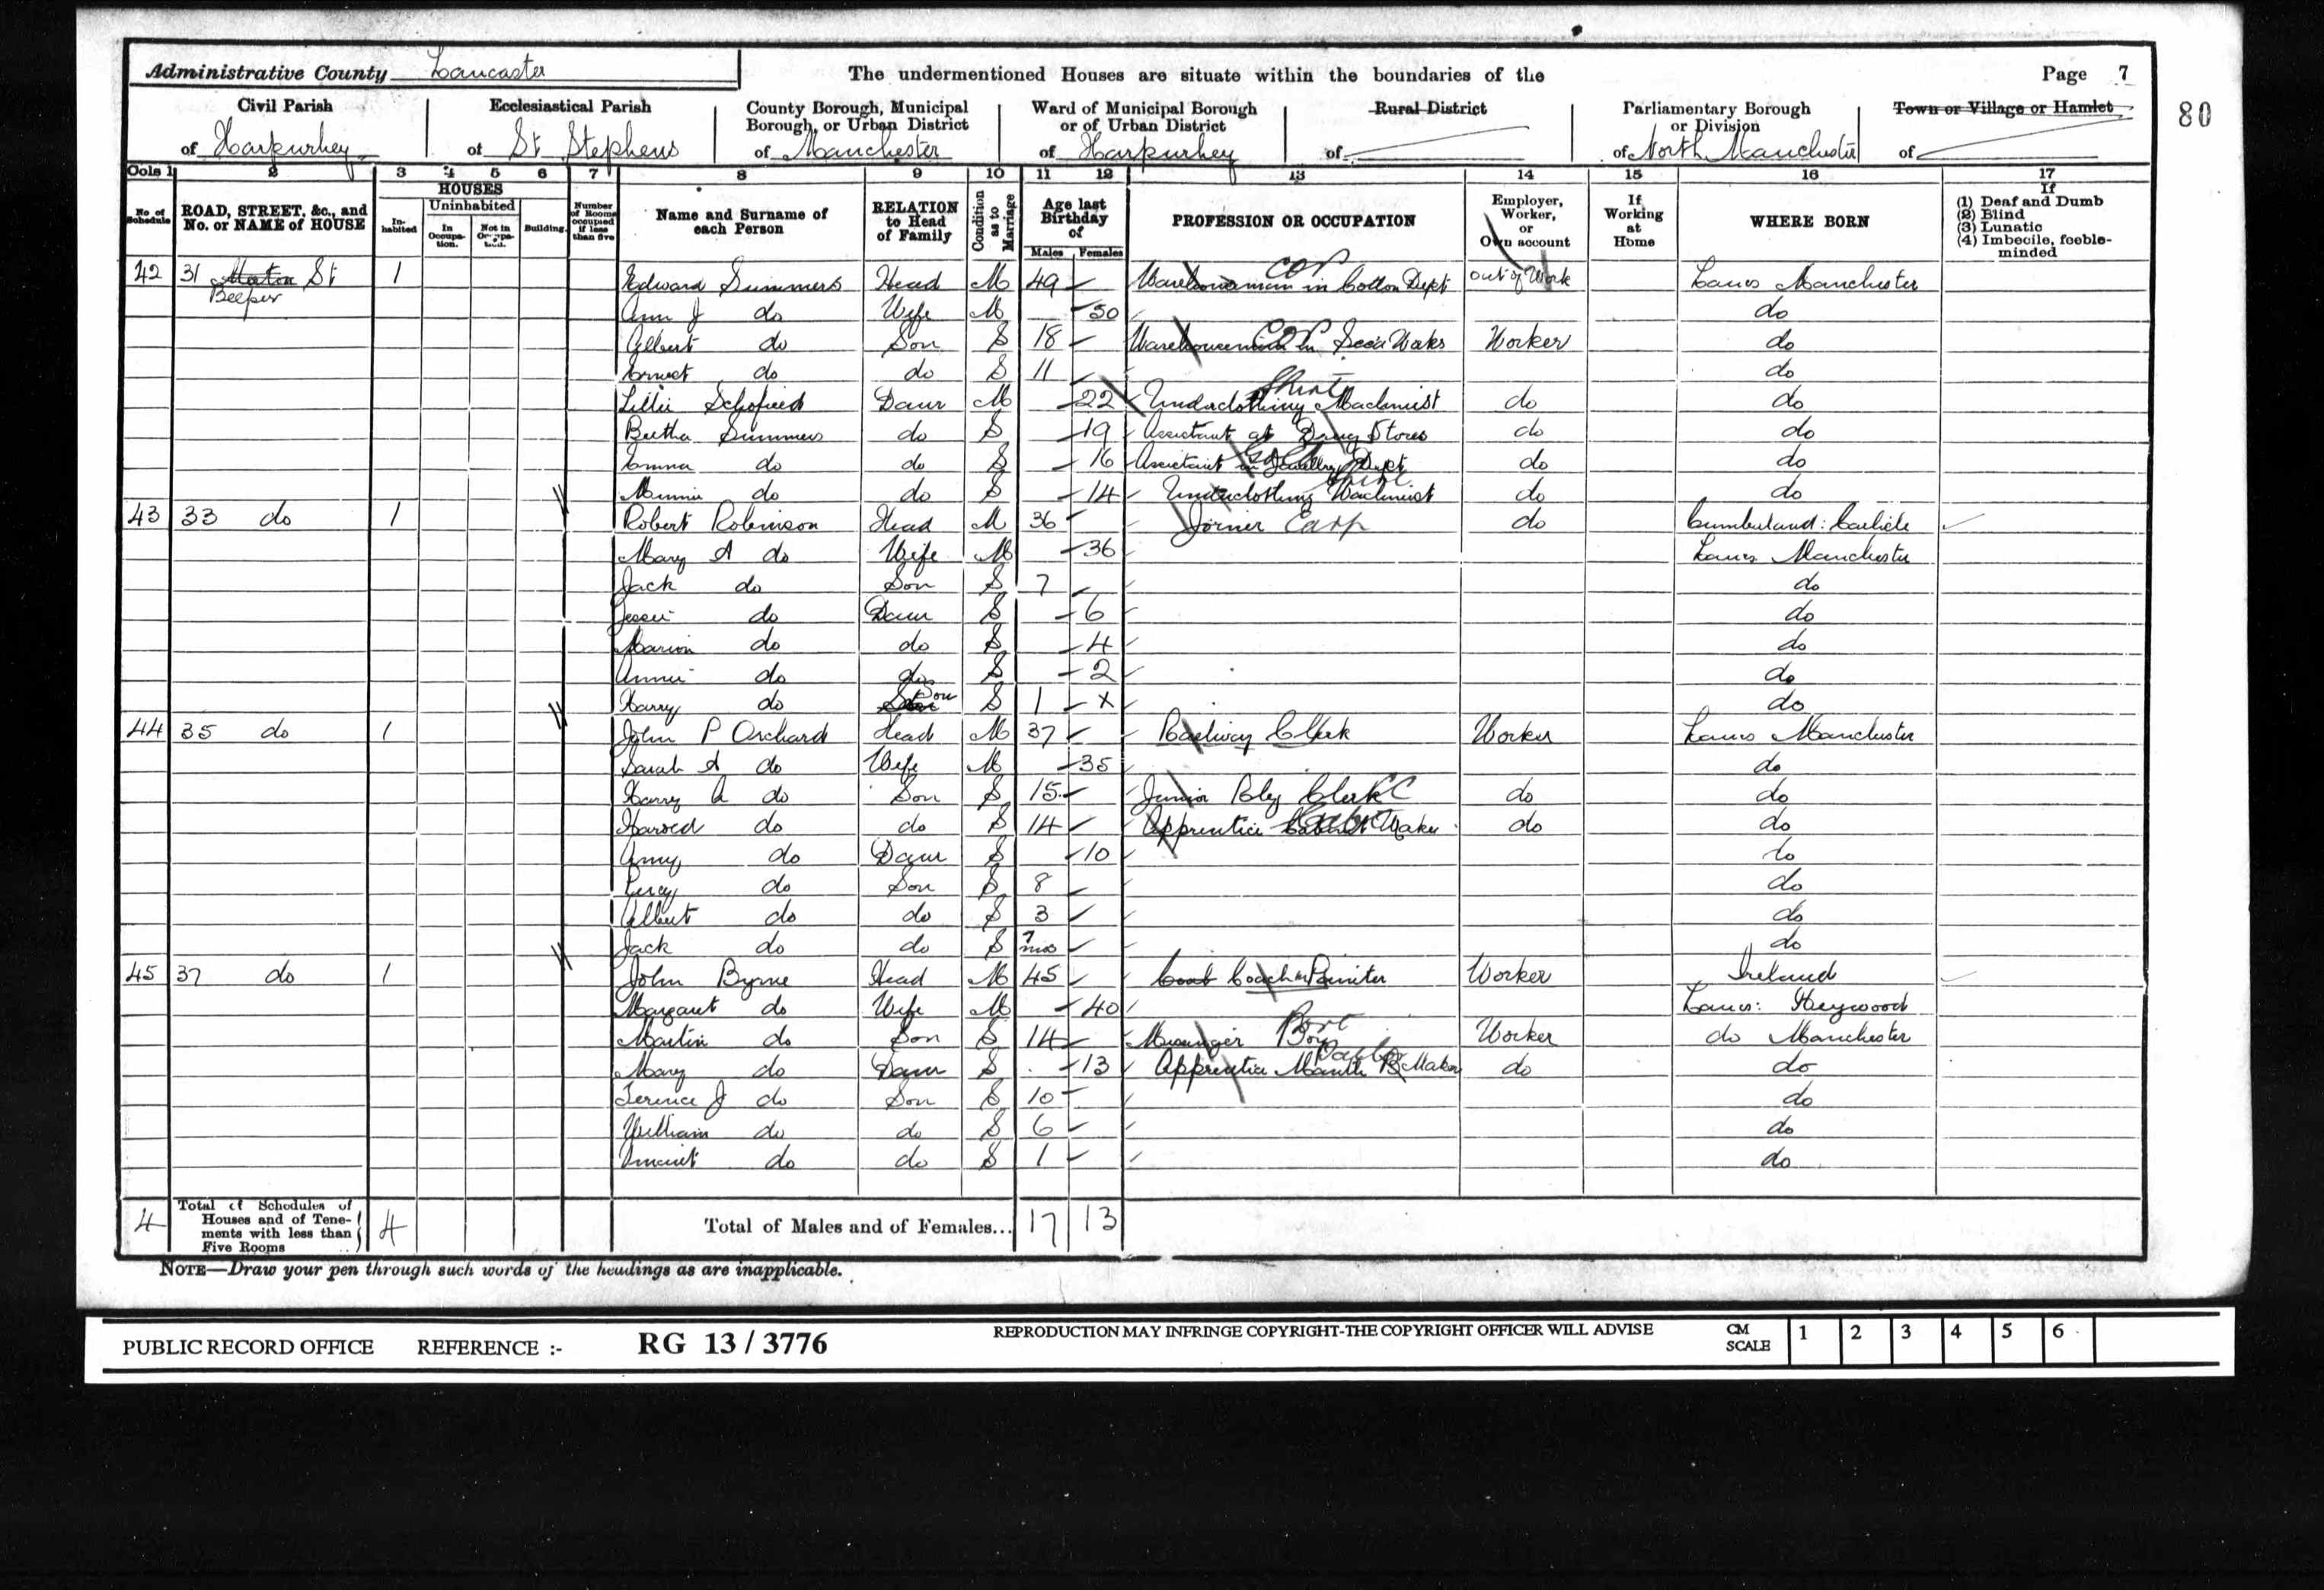 Administrative County Lancaster The undermentioned Houses are situate within the boundaries of the Page 7
80
Civil Parish of Harpurhey
Ecclesiastical Parish of St Stephens
County Borough, Municipal Borough, or Urban District of Manchester
Ward of Municipal Borough or of Urban District of Harpurhey
Rural District of
Parliamentary Borough or Division of North Manchester
Town or Village or Hamlet of
Cols 1 2 3 4 5 6 7 8 9 10 11 12 13 14 15 16 17
No. of Schedule
ROAD, STREET, &c., and No. or NAME of HOUSE
HOUSES
In-habited
Uninhabited
In Occupa-tion.
Not in Occupa-tion.
Building.
Number of Rooms occupied if less than five
Name and Surname of each Person
RELATION to Head of Family
Condition as to Marriage
Age last Birthday of
Males Females
PROFESSION OR OCCUPATION
Employer, Worker, or Own account
If Working at Home
WHERE BORN
If
(1) Deaf and Dumb
(2) Blind
(3) Lunatic
(4) Imbecile, feeble-minded
42 31 St 1 Edward Summers Head M 49 COP Warehouseman in Cotton Dept out of Work Lancs Manchester
Beeper
Ann J do Wife M 50 do
Albert do Son S 18 COP Warehouseman in Works Worker do
Ernest do do S 11 do
Lillie Schofield Daur M 22 Shirt Underclothing Machinist do do
Bertha Summers do S 19 Assistant at Drug Stores do do
Emma do do S 16 Assistant in Jewellery Dept do do
Minnie do do S 14 Shirt Underclothing Machinist do do
43 33 do 1 Robert Robinson Head M 36 Joiner Carp do Cumberland: Carlisle
Mary A do Wife M 36 Lancs Manchester
Jack do Son S 7 do
Jessie do Daur S 6 do
Marion do do S 4 do
Annie do do S 2 do
Harry do Son S 1 X do
44 35 do 1 John P Orchard Head M 37 Railway Clerk Worker Lancs Manchester
Sarah A do Wife M 35 do
Harry A do Son S 15 Junior Rly Clerk C do do
Harold do do S 14 Apprentice Cabinet Maker do do
Amy do Daur S 10 do
Percy do Son S 8 do
Albert do do S 3 do
Jack do do S 7 mos do
45 37 do 1 John Byrne Head M 45 Coach Painter Worker Ireland
Margaret do Wife M 40 Lancs: Heywood
Martin do Son S 14 Messenger Boy Port Worker do Manchester
Mary do Daur S 13 Apprentice Mantle Maker do do
Terence J do Son S 10 do
William do do S 6 do
Vincent do do S 1 do
4 Total of Schedules of Houses and of Tene-ments with less than Five Rooms 4 Total of Males and of Females... 17 13
NOTE—Draw your pen through such words of the headings as are inapplicable.
PUBLIC RECORD OFFICE REFERENCE :- RG 13 / 3776 REPRODUCTION MAY INFRINGE COPYRIGHT-THE COPYRIGHT OFFICER WILL ADVISE CM SCALE 1 2 3 4 5 6